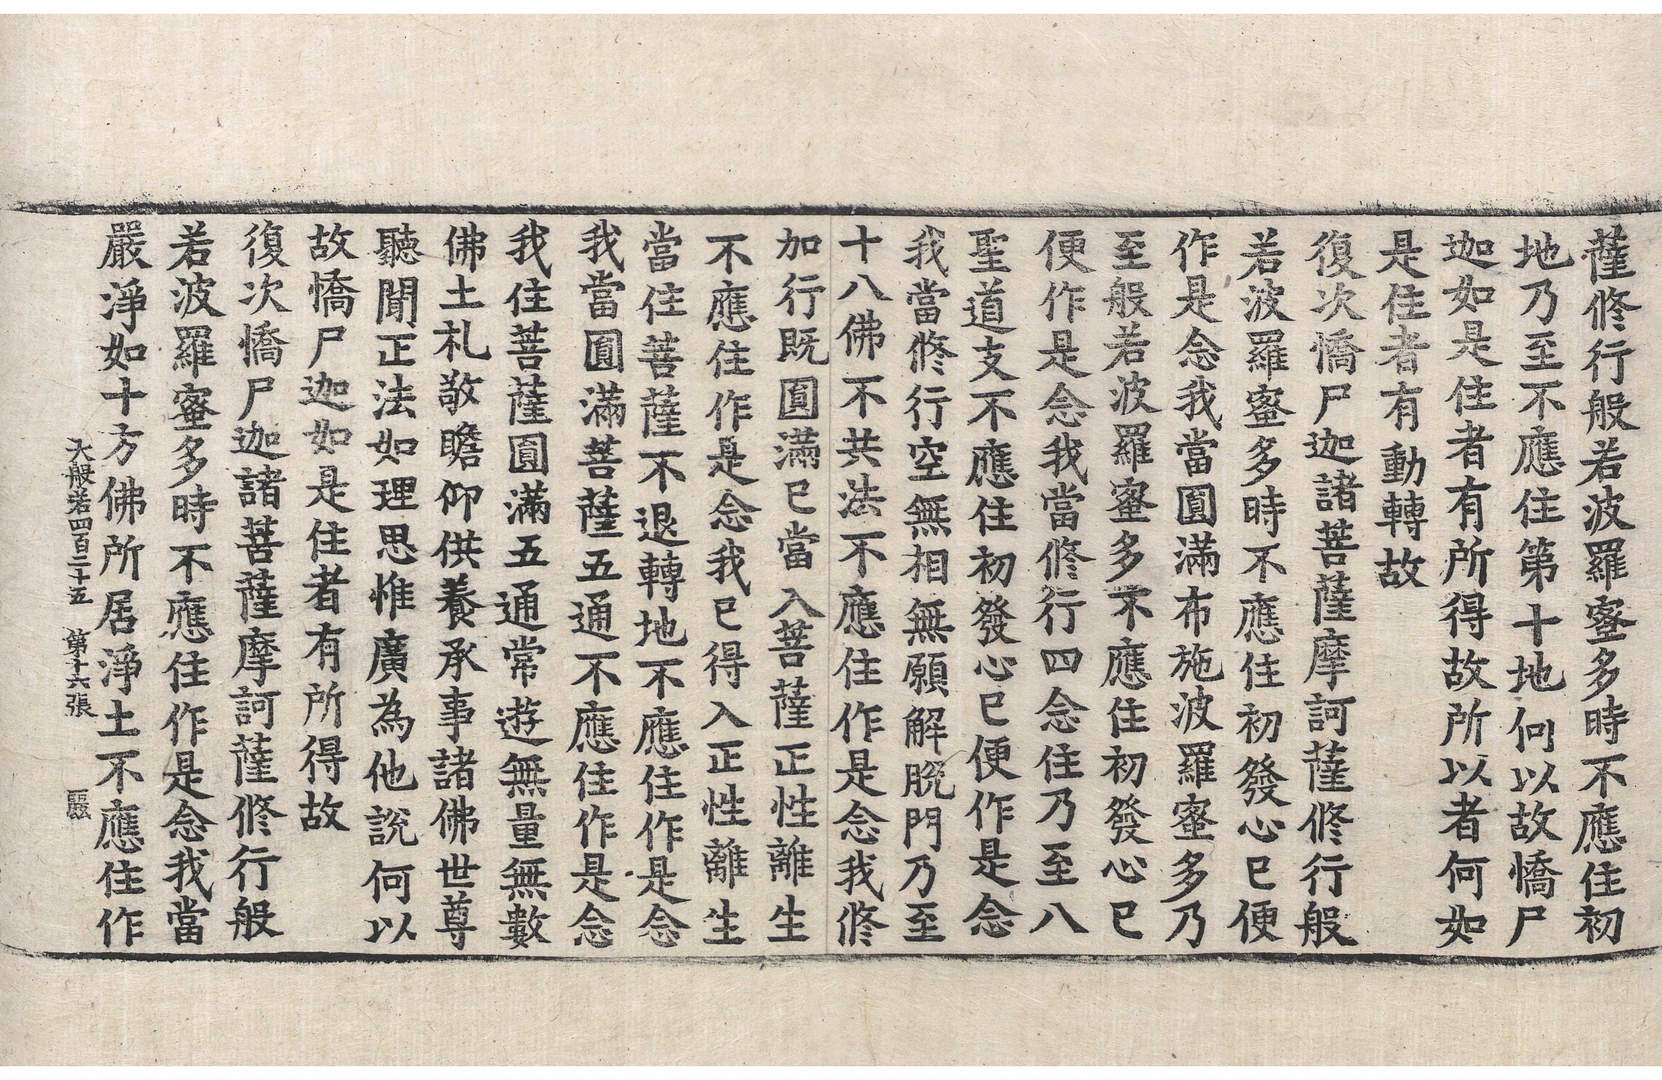 薩修行般若波羅蜜多時不應住初
地乃至不應住第十地何以故憍尸
迦如是住者有所得故所以者何如
是住者有動轉故
復次憍尸迦諸菩薩摩訶薩修行般
若波羅蜜多時不應住初發心已便
作是念我當圓滿布施波羅蜜多乃
至般若波羅蜜多不應住初發心已
便作是念我當修行四念住乃至八
聖道支不應住初發心已便作是念
我當修行空無相無願解脫門乃至
十八佛不共法不應住作是念我修
加行既圓滿已當入菩薩正性離生
不應住作是念我已得入正性離生
當住菩薩不退轉地不應住作是念
我當圓滿菩薩五通不應住作是念
我住菩薩圓滿五通常遊無量無數
佛土礼敬瞻仰供養承事諸佛世尊
聽聞正法如理思惟廣為他說何以
故憍尸迦如是住者有所得故
復次憍尸迦諸菩薩摩訶薩修行般
若波羅蜜多時不應住作是念我當
嚴淨如十方佛所居淨土不應住作
大般若四百二十五 第十六張